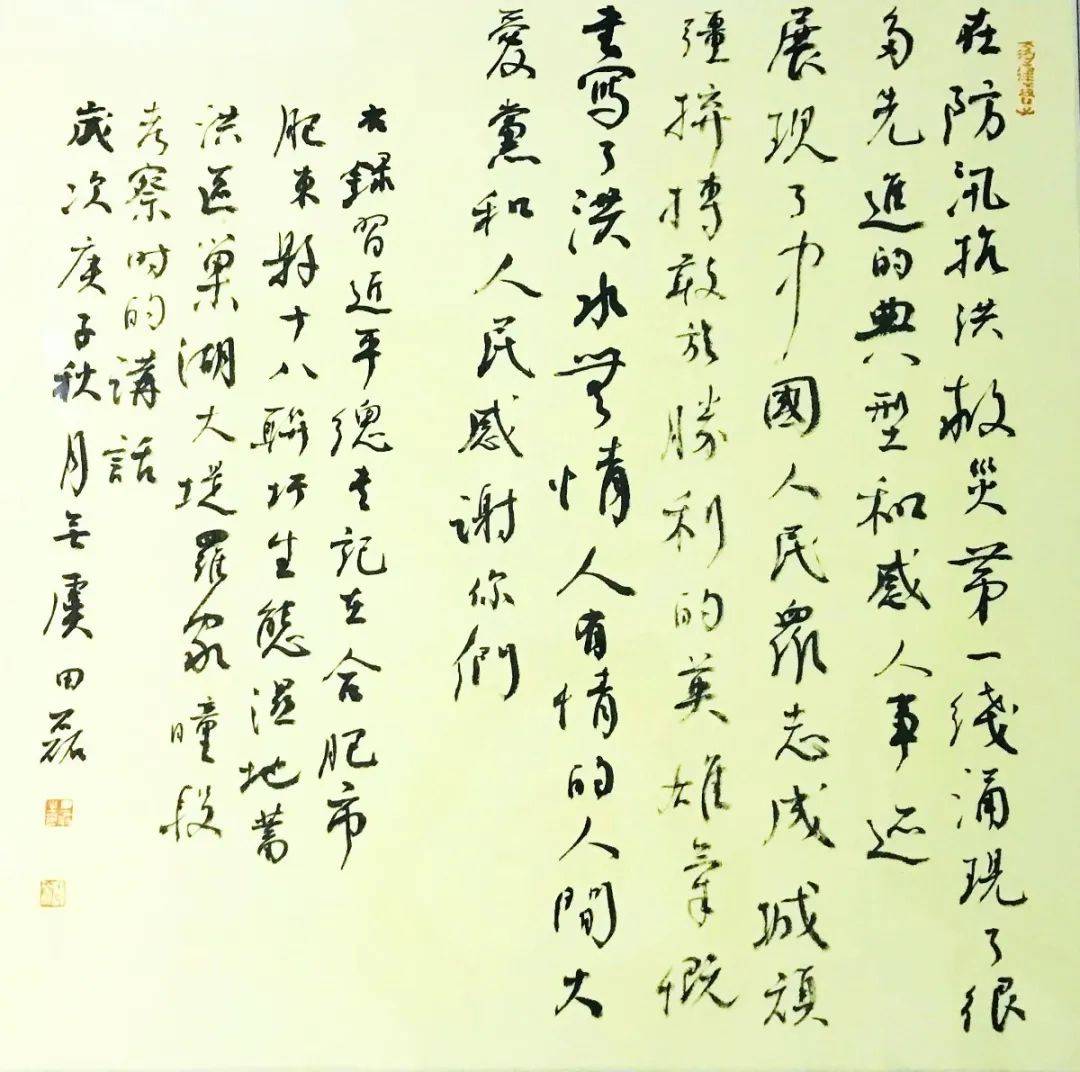 在防汛抗洪救災第一綫涌現了很
多先進的典型和感人事迹
展現了中國人民眾志成城頑
彊拼搏敢於勝利的英雄氣概
書寫了洪水無情人有情的人間大
愛黨和人民感謝你們
右録習近平總書記在合肥市
肥東縣十八聯圩生態濕地蓄
洪區巢湖大堤羅家疃段
考察时的講話
歲次庚子秋月 虞田磊